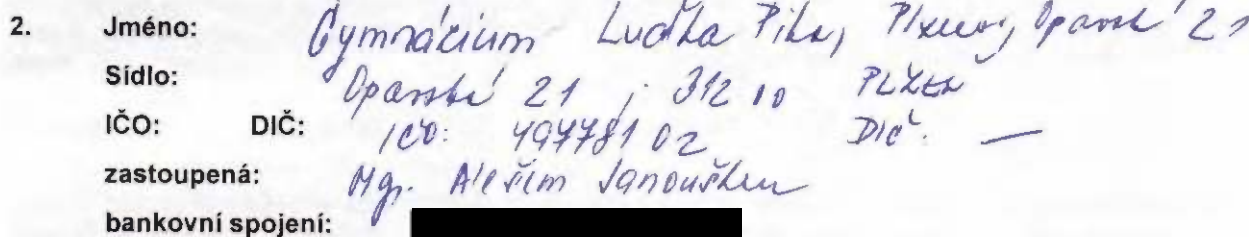 2. Jméno: Gymnázium Luďka Pika, Plzeň, Opavská 21
Sídlo: Opavská 21, 312 00 PLZEŇ
IČO: DIČ: IČO: 49778102 DIČ: —
zastoupená: Mgr. Alešem Janouškem
bankovní spojení: